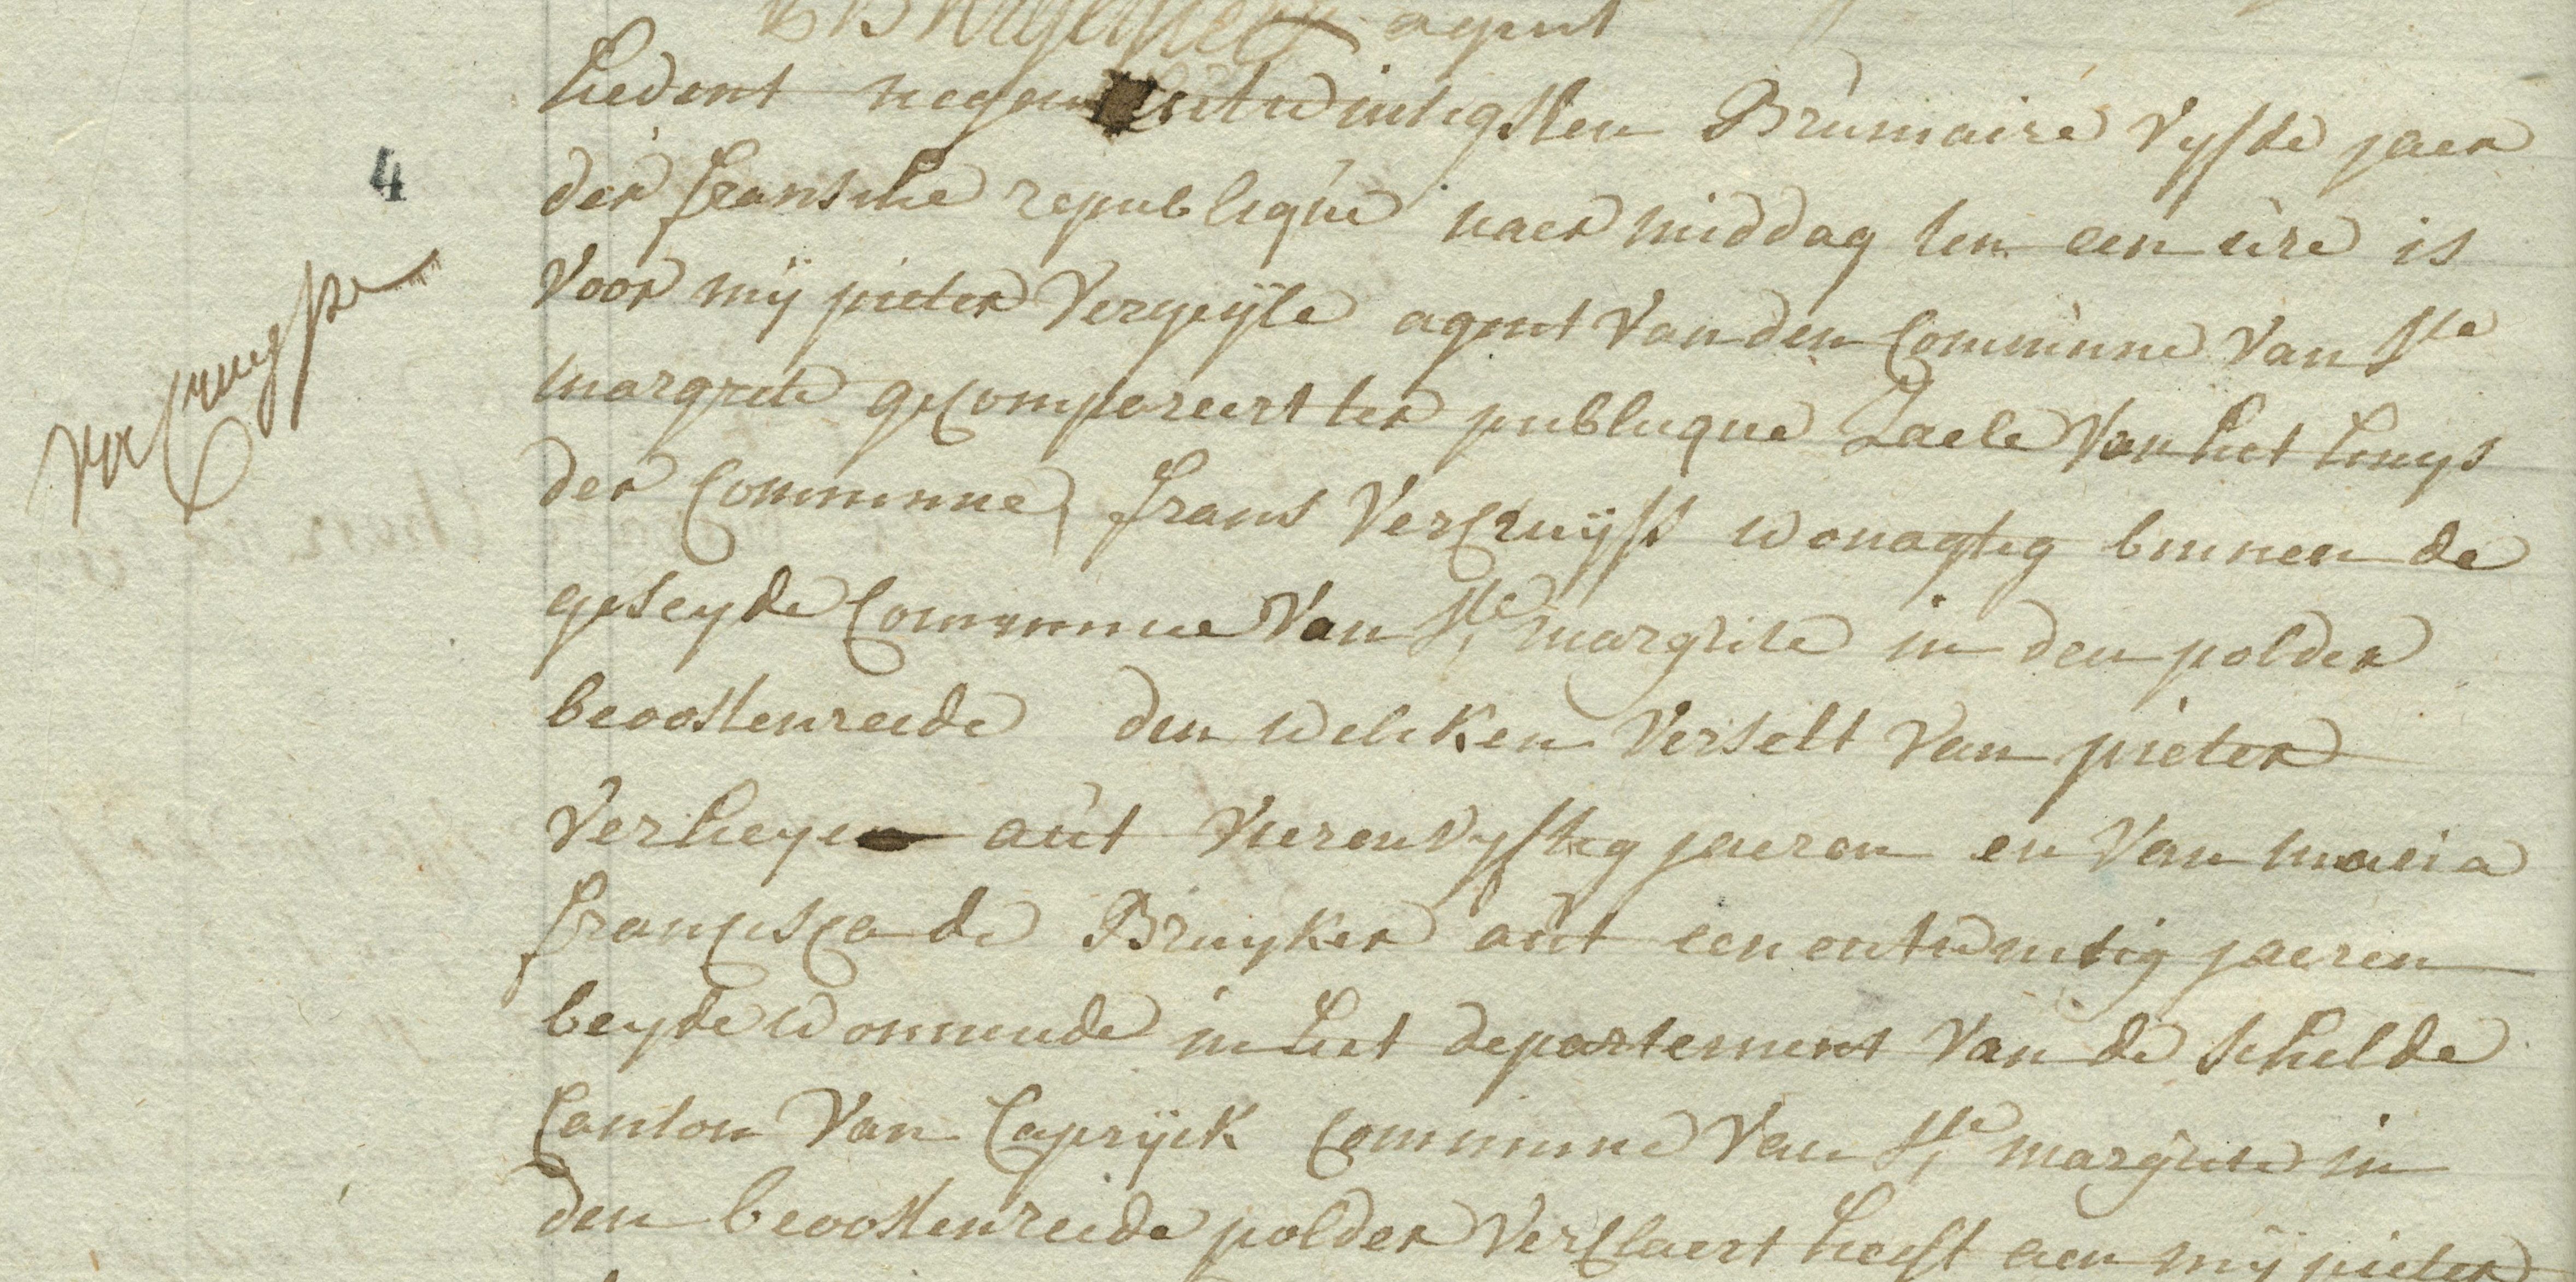 agent
hedent negenentwintigsten Brumaire vyfde jaer
4
der fransche republique naer middag ten een ure is
voor mij pieter Vergeijle agent van den Commune van Ste
vercruijsse
margrete gecompareert ter publicque Zaele van het huys
der Commune, frans VerCruijsse wonagtig binnen de
geseyde Commune van Ste margrite in den polder
beoostenreede den welcken verselt van pieter
Verheyen aut vierenvyftig jaeren en van maria
francisca de Bruyker aut eenentwintig jaeren
beyde wonnende in het departement van de schelde
Canton van Caprijck Commune van Ste margrite in
den beoostenreede polder verclaert heeft aen mij pieter